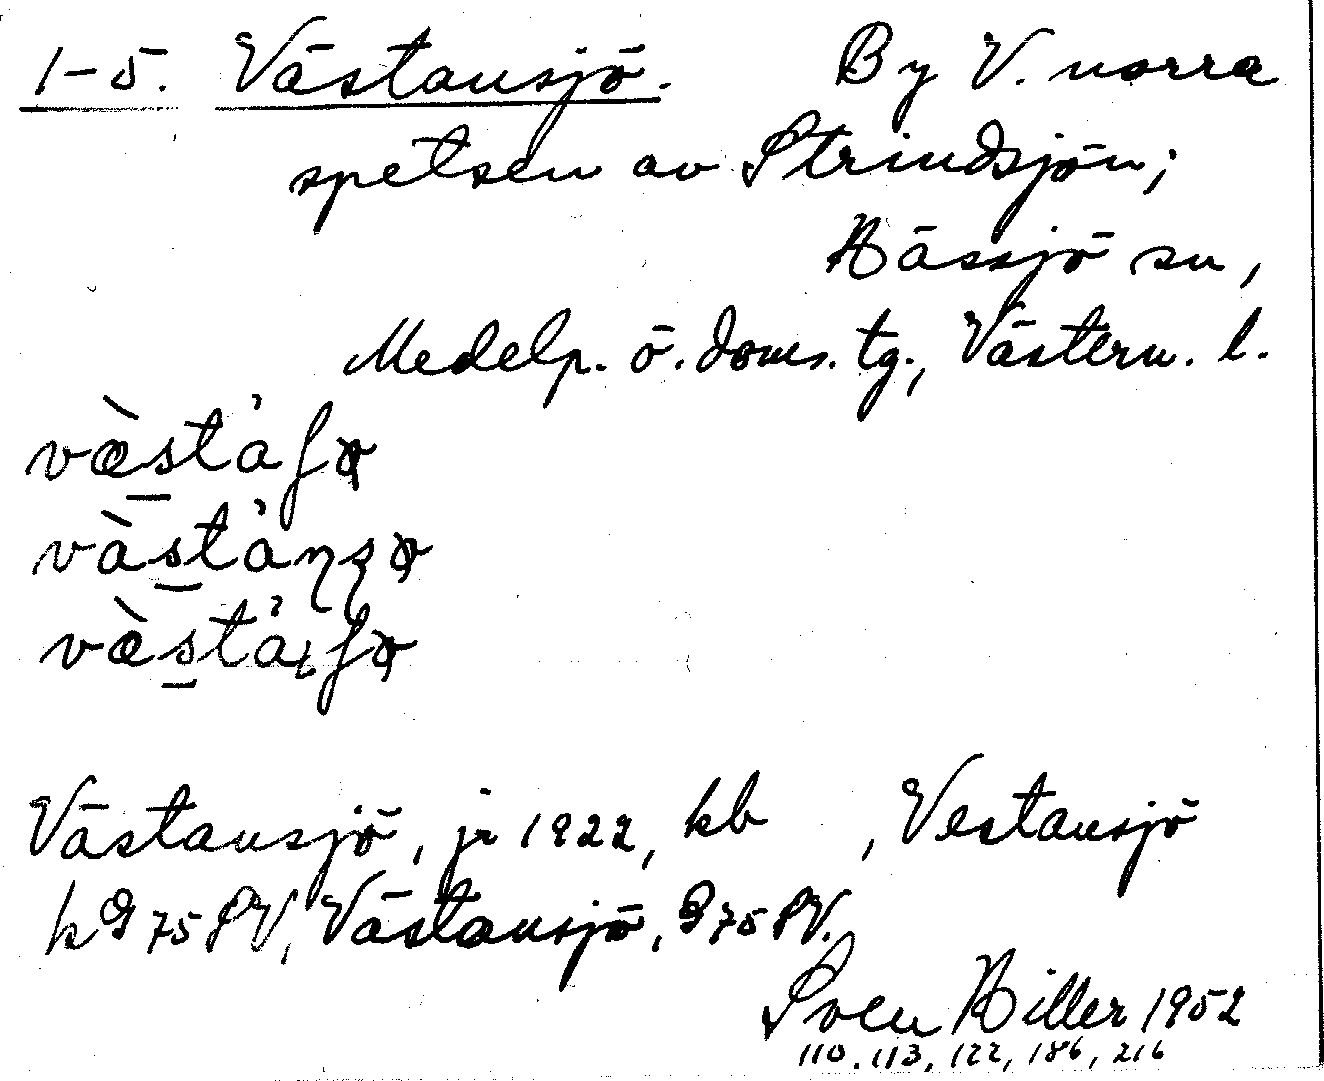 1-5. Västansjö. By V. norra
spetsen av Strindsjön;
Hässjö sn,
Medelp. ö. doms. tg., Västern. l.
Västansjö, jr 1922, kb , Vestansjö
k G 75 SV, Västansjö, G 75 SV.
Sven Hiller 1952
110, 113, 122, 186, 216